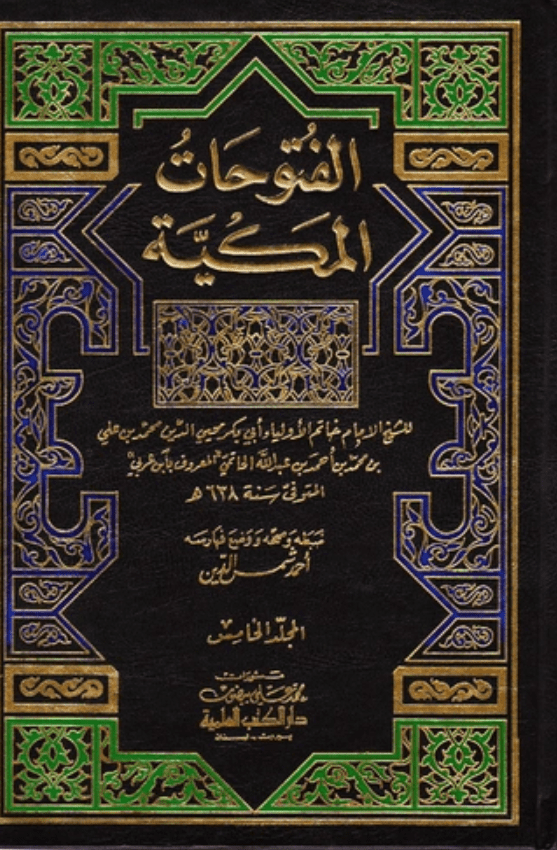 الفُتوُحَاتُ
المَكيَّة
للشيخ الإمام خاتم الأولياء أبي بكر محيي الدين محمد بن علي
بن محمد بن أحمد بن عبد الله الحاتمي "المعروف بابن عربي"
المتوفى سَنة ٦٣٨ هـ
ضبطه وصححه ووضع فهارسه
أحمد شمس الدين
المجلد الخامِس
منشورات
محمد علي بيضون
دار الكتب العلمية
بيروت - لبنان